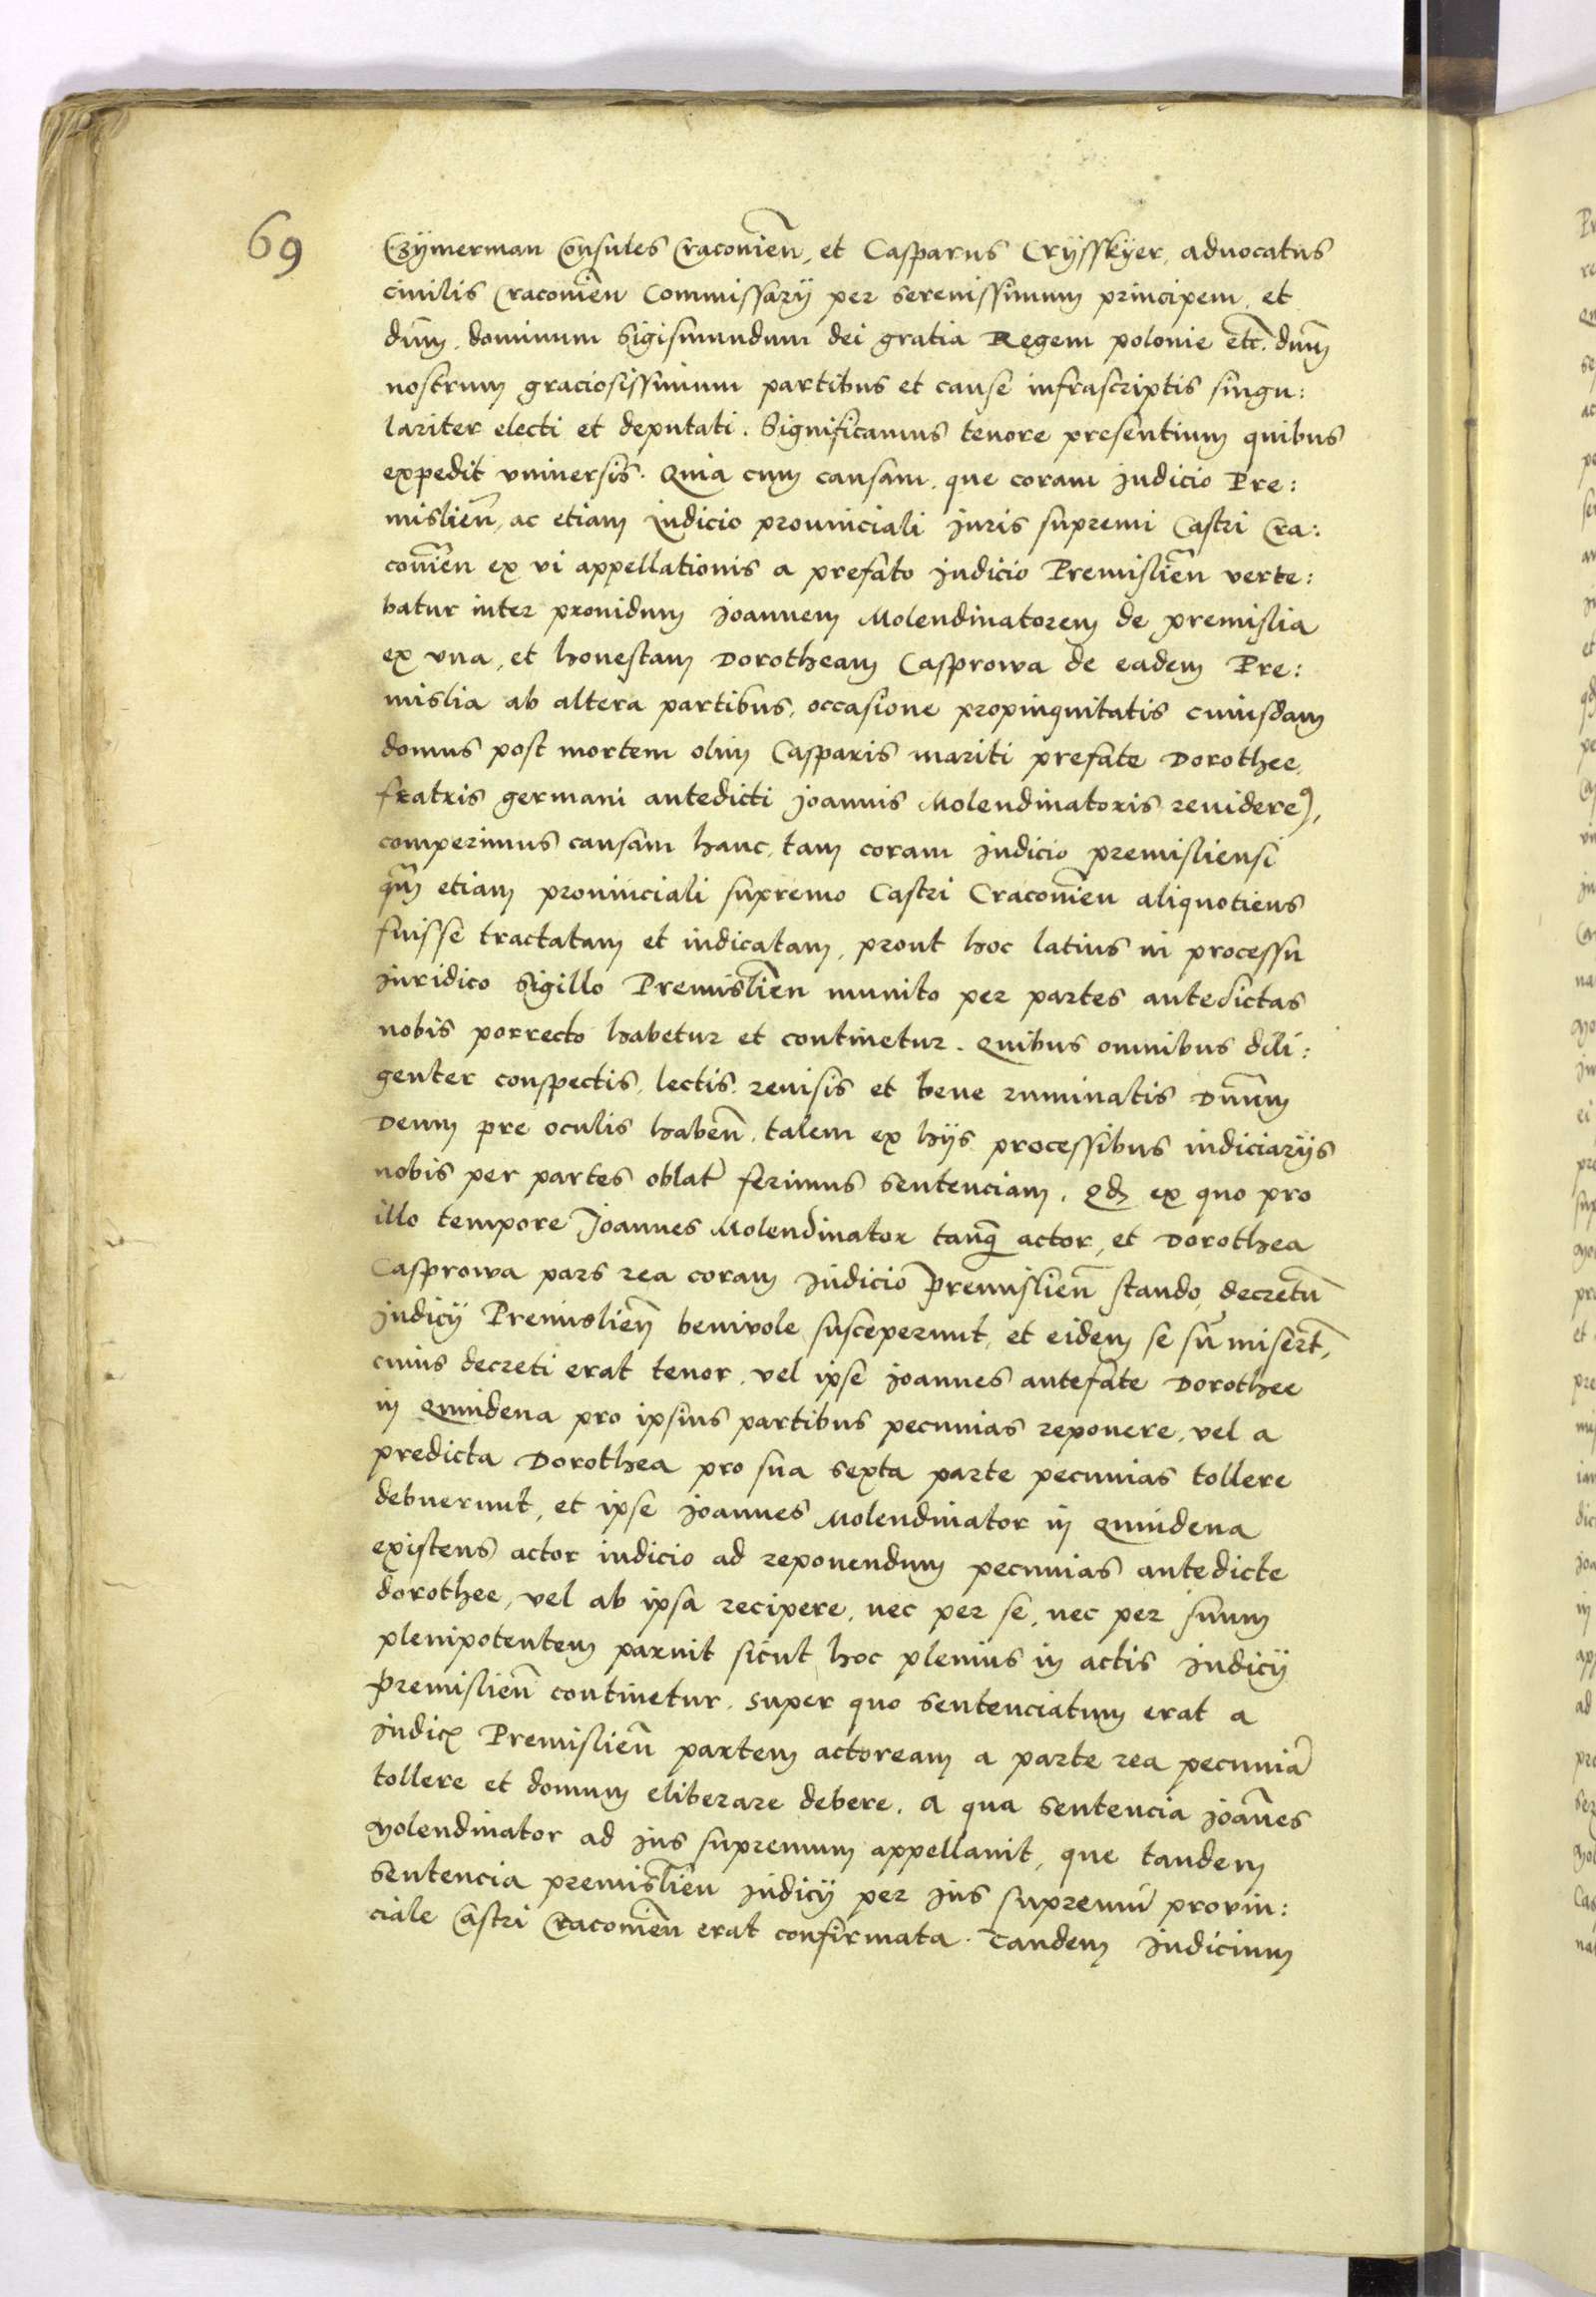 69
Czÿmerman Consules Cracovien̄, et Casparus Crÿsskÿer, aduocatus
ciuilis Cracovien̄ Commissarij per serenissimum principem, et
dūm. dominum Sigismundum dei gratia Regem polonie etc̄. dnūm
nostrum graciosissimum partibus et cause infrascriptis singu:
lariter electi et deputati. Significamus tenore presentium quibus
expedit vniuersis. Quia cum causam, que coram Judicio Pre:
mislien̄, ac etiam Judicio prouinciali Juris supremi Castri Cra:
couien̄ ex vi appellationis a prefato Judicio Premislien̄ verte:
batur inter prouidum Joannem Molendinatorem de premislia
ex vna, et honestam Dorotheam Casprowa de eadem Pre:
mislia ab altera partibus, occasione propinquitatis cuiusdam
domus post mortem olim Casparis mariti prefate Dorothee,
fratris germani antedicti Joannis Molendinatoris reuideremꝯ,
comperimus causam hanc, tam coram Judicio premisliensi
qm̄ etiam prouinciali supremo Castri Cracouien̄ aliquotiens
fuisse tractatam et iudicatam, prout hoc latius in processu
Juridico Sigillo Premislien̄ munito per partes antedictas
nobis porrecto habetur et continetur. Quibus omnibus dili:
genter conspectis, lectis, reuisis et bene ruminatis Dnūm
Deum pre oculis haben̄, talem ex hijs processibus iudiciarijs
nobis per partes oblat̄ ferimus sentenciam. Qd̄ ex quo pro
illo tempore Joannes Molendinator tanq̄ actor, et Dorothea
Casprowa pars rea coram Judicio Premislien̄ stando, decretū
Judicij Premislien̄ beniuole susceperunt, et eidem se sūmisert̄,
cuius decreti erat tenor, vel ipse Joannes antefate Dorothee
in Quindena pro ipsius partibus pecunias reponere, vel a
predicta Dorothea pro sua sexta parte pecunias tollere
debuerunt, et ipse Joannes Molendinator in Quindena
existens actor iudicio ad reponendum pecunias antedicte
dorothee, vel ab ipsa recipere, nec per se, nec per suum
plenipotentem paruit sicut hoc plenius in actis Judicij
Premislien̄ continetur. Super quo sentenciatum erat a
Judicꝭ Premislien̄ partem actoream a parte rea pecuniā
tollere et domum eliberare debere. A qua sentencia Joān̄es
Molendinator ad Jus supremum appellauit, que tandem
sentencia premislien̄ Judicij per Jus supremū prouin:
ciale Castri Cracouien̄ erat confirmata. Tandem Judicium